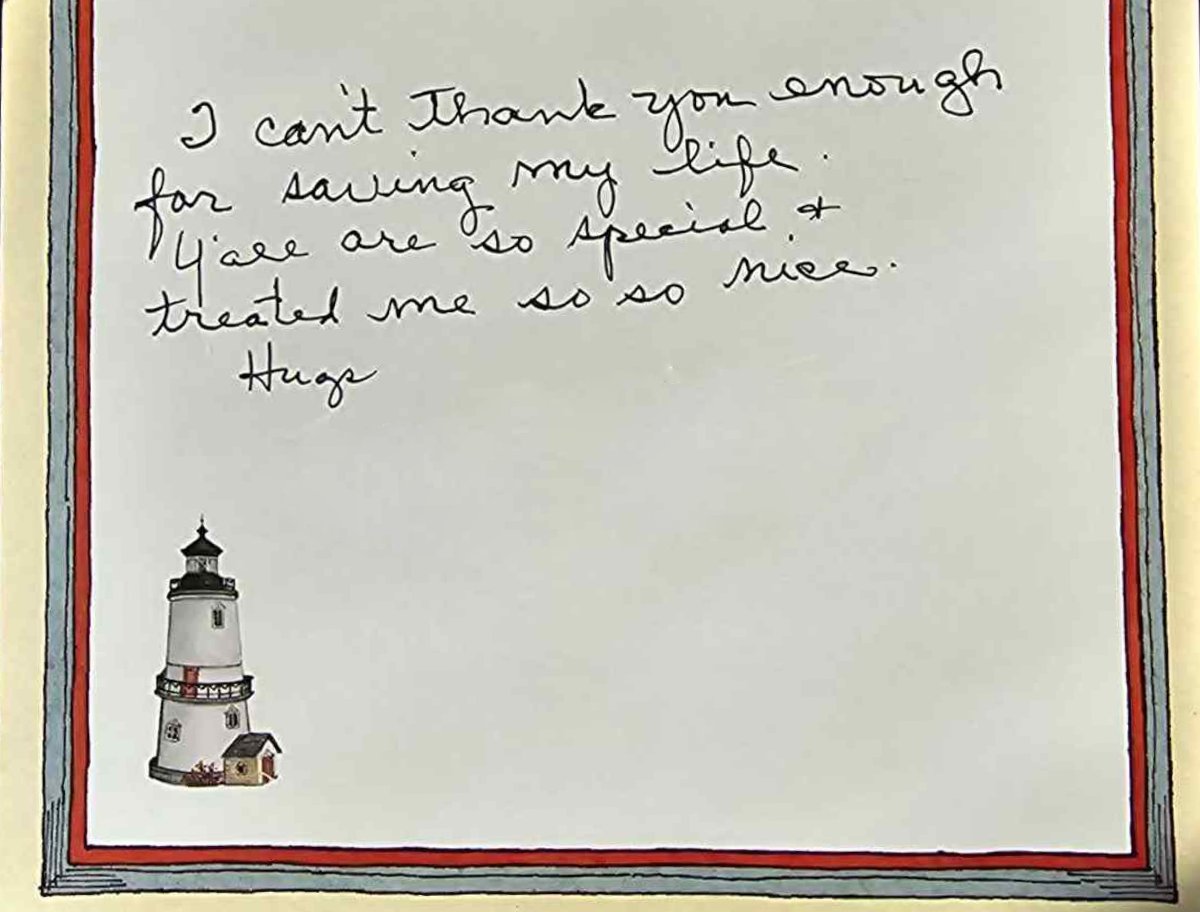 I can't Thank you enough
for saving my life.
Y'all are so special &
treated me so so nice.
Hugs